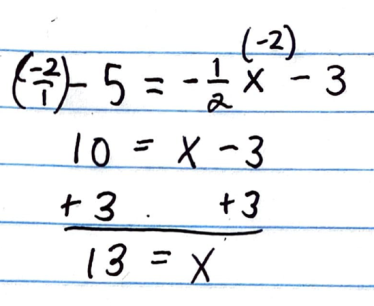 (-2/1) - 5 = - 1/2 x (-2) - 3
10 = x - 3
+ 3 . + 3
13 = x